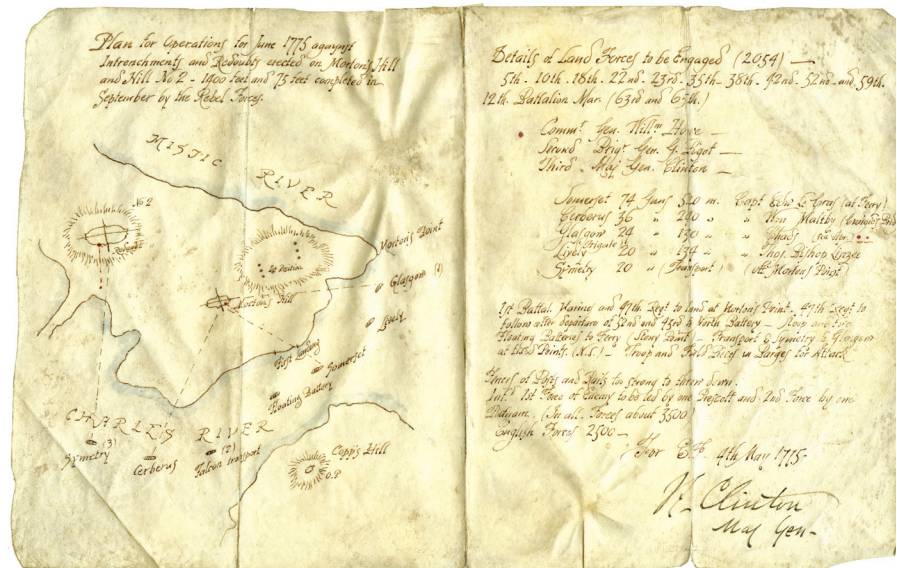 Plan for Operations for June 1775 against
Intrenchments and Redoubts erected on Morton's Hill
and Hill No 2 - 1400 feet and 75 feet completed in
September by the Rebel Forces.
MISTIC RIVER
No 2
Redoubt
1st Position
Morton's Hill
Morton's Point
Glasgow (1)
Lively
First Landing
Somerset
Floating Battery
CHARLE'S RIVER
Symetry (3)
Cerberus
Falcon transport (2)
Copp's Hill
O.P.
Details of Land Forces to be Engaged (2054) —
5th - 10th - 18th - 22nd - 23rd - 35th - 38th - 42nd - 52nd - and 59th -
12th Battalion Mar. (63rd and 65th.)
Commt Gen. Willm Howe —
Second Brigt Gen. G. Pigot —
Third - Maj Gen. Clinton —
Somerset 74 Guns 520 m. Capt Edw Le Cras (at Ferry)
Cerberus 36 " 200 " "
Glasgow 24 " 130 " "
Lively 20 " 134 " " Thos. Bishop Linzee
Symetry 20 " (Transport) (Off Mortons Point)
1st Battal. Marines and 47th Regt to land at Morton's Point. 47th Regt to
follow after departure of 52nd and 43rd to North Battery — Sloop and two
Floating Batteries to Ferry (Stony Point — Transport & Symetry & Glasgow
— Troop and Field Pieces in Barges for Attack
Fences of Posts and Rails too strong to throw down.
1st Force of Enemy to be led by one Prescott and 2nd Force by one
Putnam. (In all, Forces about 3500)
English Forces 2500 —
4th May 1775
H. Clinton
Maj Gen-